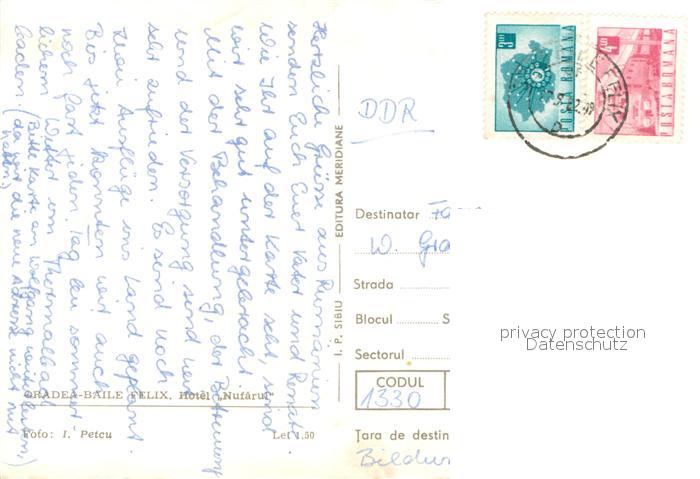 Herzliche Grüsse aus Rumänien
senden Euch Euer Vater und Renate.
Wie Ihr auf der Karte seht, sind
wir sehr gut untergebracht.
Mit der Behandlung, der Betreuung
und der Versorgung sind wir
sehr zufrieden. Es sind noch
Ausflüge ins Land geplant.
Bis jetzt konnten wir auch
noch fast jeden Tag bei sommer-
lichem Wetter im Thermalbad
baden. (Bitte Karte an Wolfgang weiterleiten,
da wir die neue Adresse nicht mit
hatten.)
ORADEA-BĂILE FELIX. Hotel „Nufărul"
Foto: I. Petcu
Lei 1,50
I. P. SIBIU
EDITURA MERIDIANE
DDR
3 LEI
POSTA ROMANA
4 LEI
POSTA ROMANA
FELIX
Destinatar
W.
Strada
Blocul S
Sectorul
CODUL
1330
Țara de destin
privacy protection
Datenschutz